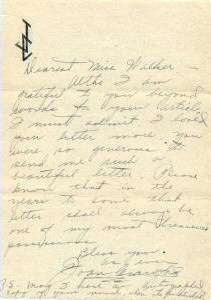 Dearest Miss Walker -
Altho I am
grateful to you beyond
words for your article,
I must admit I loved
your letter more. you
were so generous to
send me such a
beautiful letter. Please
know that in the
years to come that
letter shall always be
one of my most treasured
possessions.
Bless you.
as ever
Joan Crawford
P.S. May I have an autographed
copy of your novel